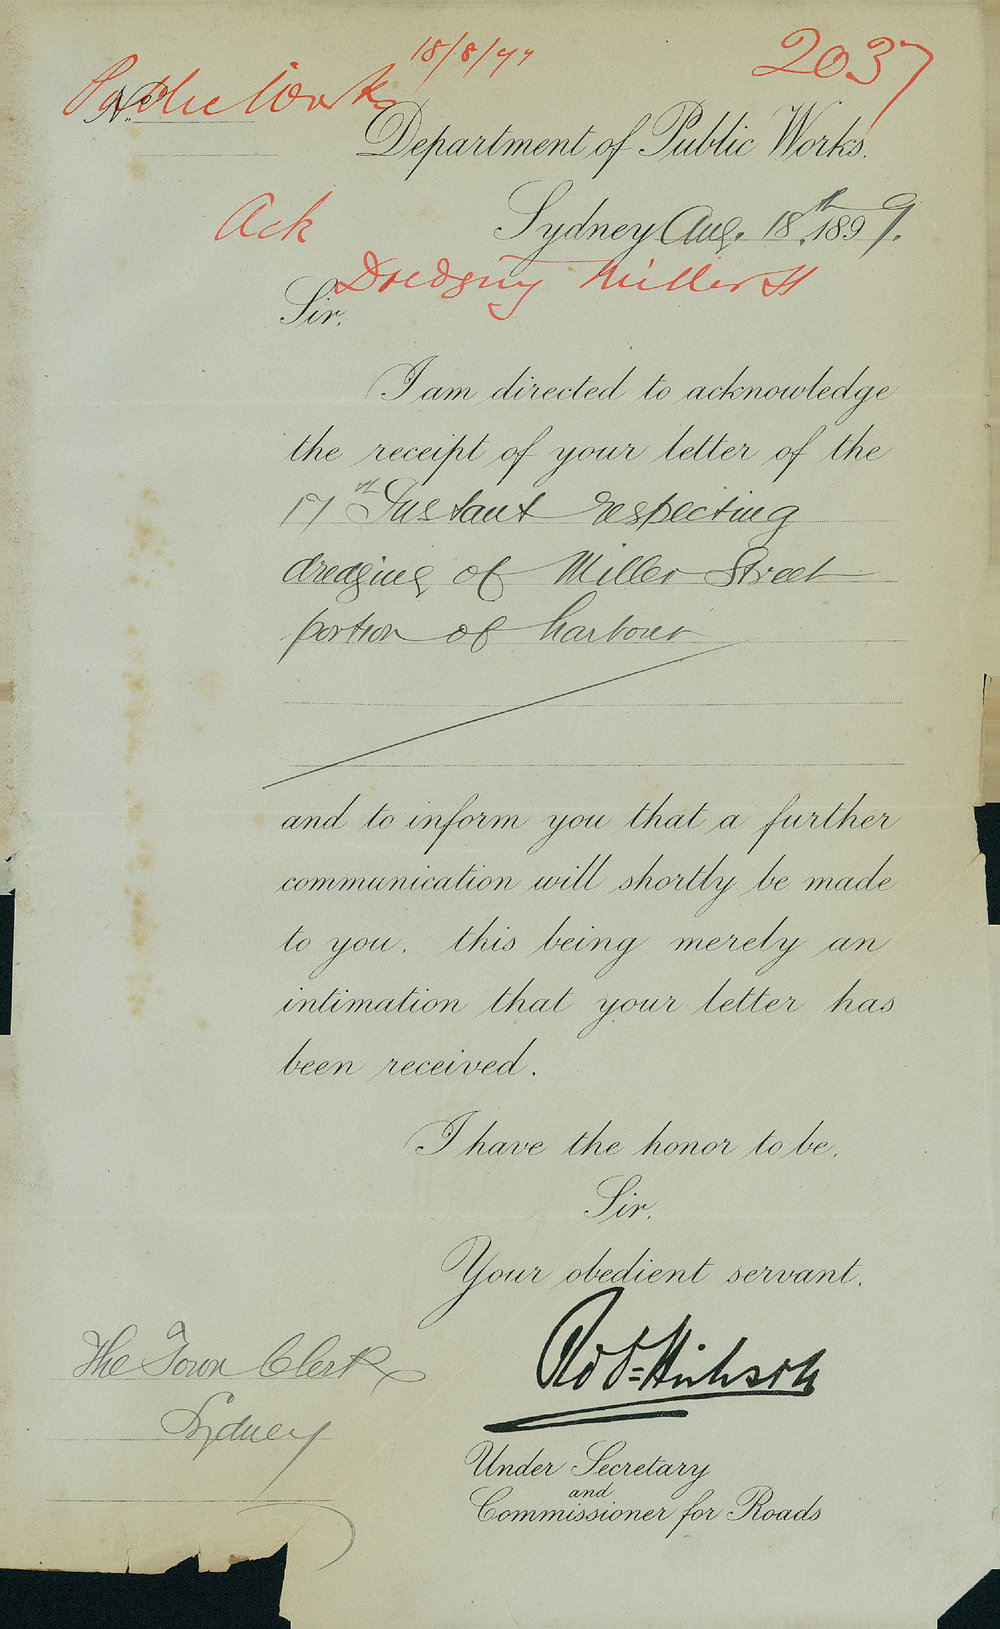 18/8/97
2037
Public Works
No.
Department of Public Works.
Ack
Sydney Aug. 18th 1897.
Dredging Miller St
Sir,
I am directed to acknowledge
the receipt of your letter of the
17th Instant respecting
dredging of Miller Street
portion of harbour
and to inform you that a further
communication will shortly be made
to you, this being merely an
intimation that your letter has
been received.
I have the honor to be,
Sir,
Your obedient servant.
Robt. Hickson
The Town Clerk
Sydney
Under Secretary
and
Commissioner for Roads